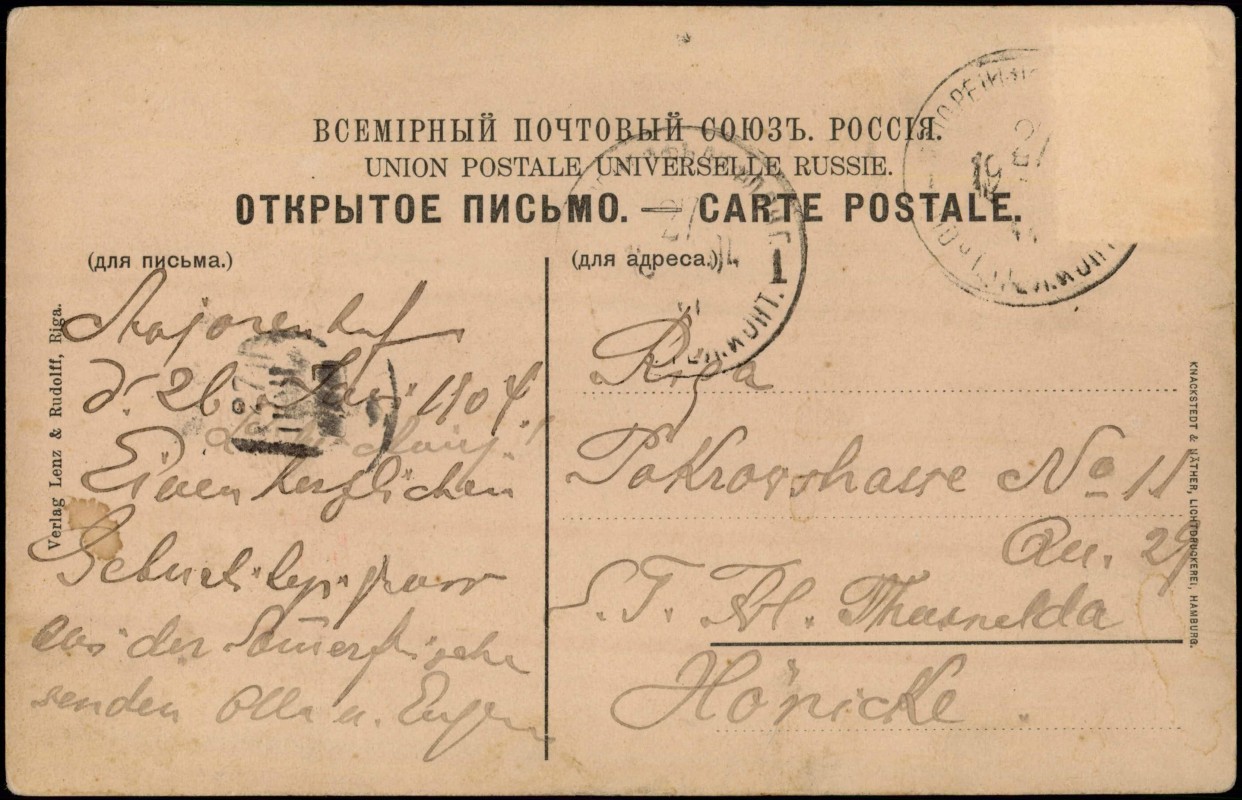 ВСЕМІРНЫЙ ПОЧТОВЫЙ СОЮЗЪ. РОССІЯ.
UNION POSTALE UNIVERSELLE RUSSIE.
ОТКРЫТОЕ ПИСЬМО. — CARTE POSTALE.
(для письма.)
Majorenhof
d. 26 Juni 1904.
Einen herzlichen
Geburtstagsgruss
aus der Som̅erfrische
senden Olla u. Eugen
(для адреса.)
Riga
Pokrowstrasse No 11
Qu. 29
S. T. Frl. Thusnelda
Hönicke
Verlag Lenz & Rudolff, Riga.
KNACKSTEDT & NÄTHER, LICHTDRUCKEREI, HAMBURG.